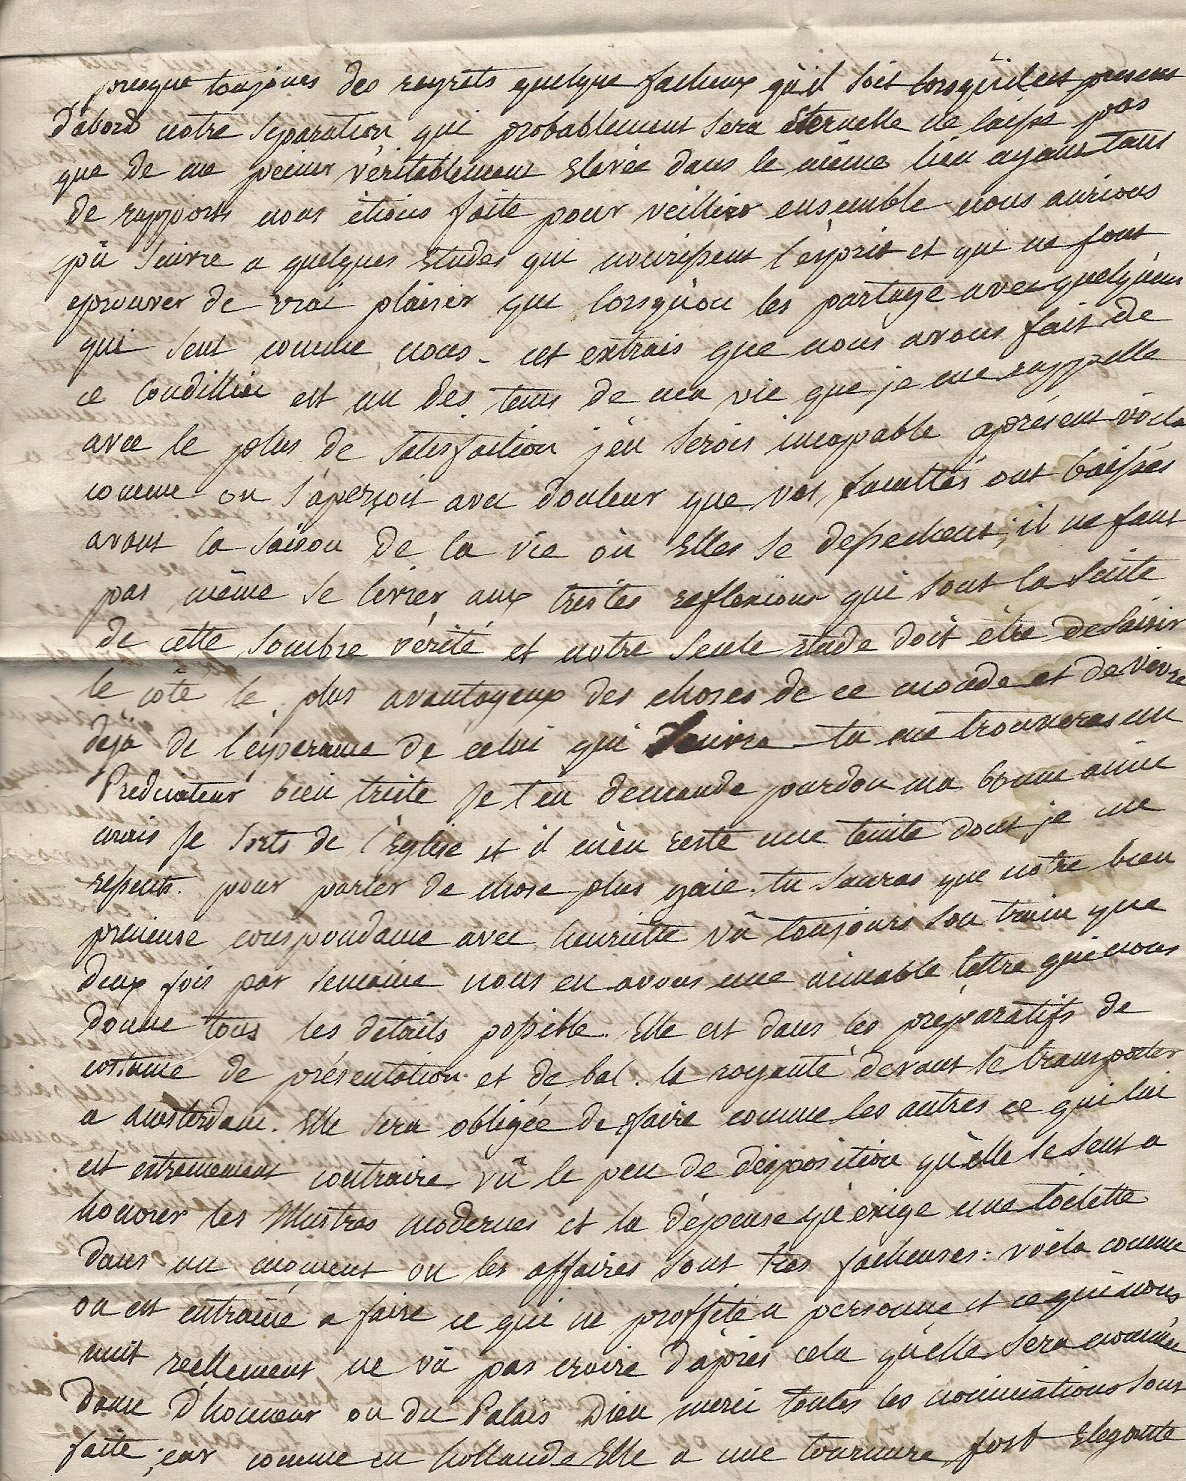 presque toujours des regrets quelque facheux qu'il soit lorsqu'il est present
d'abord notre separation qui probablement sera éternelle ne laisse pas
que de me peiner véritablement Elevée dans le même lieu ayant tant
de rapports nous étions faite pour veillier ensemble nous aurions
pû suivre a quelques Etudes qui nourissent l'ésprit et qui ne font
eprouver de vrai plaisir que lorsqu'on les partage avec quelqu'un
qui sent comme nous - cet extrais que nous avons fait de
ce Condillac est un des tems de ma vie que je me rappelle
avec le plus de satisfaction j'en serois incapable apresent voila
comme on s'aperçoit avec douleur que vos facultés ont baissés
avant la saison de la vie où Elles se depechent; il ne faut
pas même se livrer aux tristes reflexions qui sont la suite
de cette sombre vérité et notre seule etude doit être de saisir
le côté le plus avantageux des choses de ce monde et de vivre
dejà de l'esperance de celui qui suivra - tu me trouveras un
Predicateur bien triste je t'en demande pardon ma bonne amie
mais je sorts de l'Eglise et il m'en reste une teinte dont je me
repents. pour parler de chose plus gaie. tu sauras que notre bien
precieuse corespondance avec henriette va toujours son train que
deux fois par semaine nous en avons une aimable léttre qui nous
donne tous les détails possible. Elle est dans les préparatifs de
costume de présentation et de bal. la royauté devant se transporter
a Amsterdam. Elle sera obligée de faire comme les autres ce qui lui
est extremement contraire vû le peu de disposition qu'elle se sent a
honorer les Illustres modernes et la dépense qu'exige une toilette
dans un moment ou les affaires sont tres facheuses: voila comme
on est entrainé a faire ce qui ne proffite a personne et ce qui nous
nuit reellement ne và pas croire d'après cela qu'elle sera nommée
Dame d'honneur ou du Palais Dieu merci toutes les nominations sont
faite; car comme en hollande Elle a une tournure fort Elegante